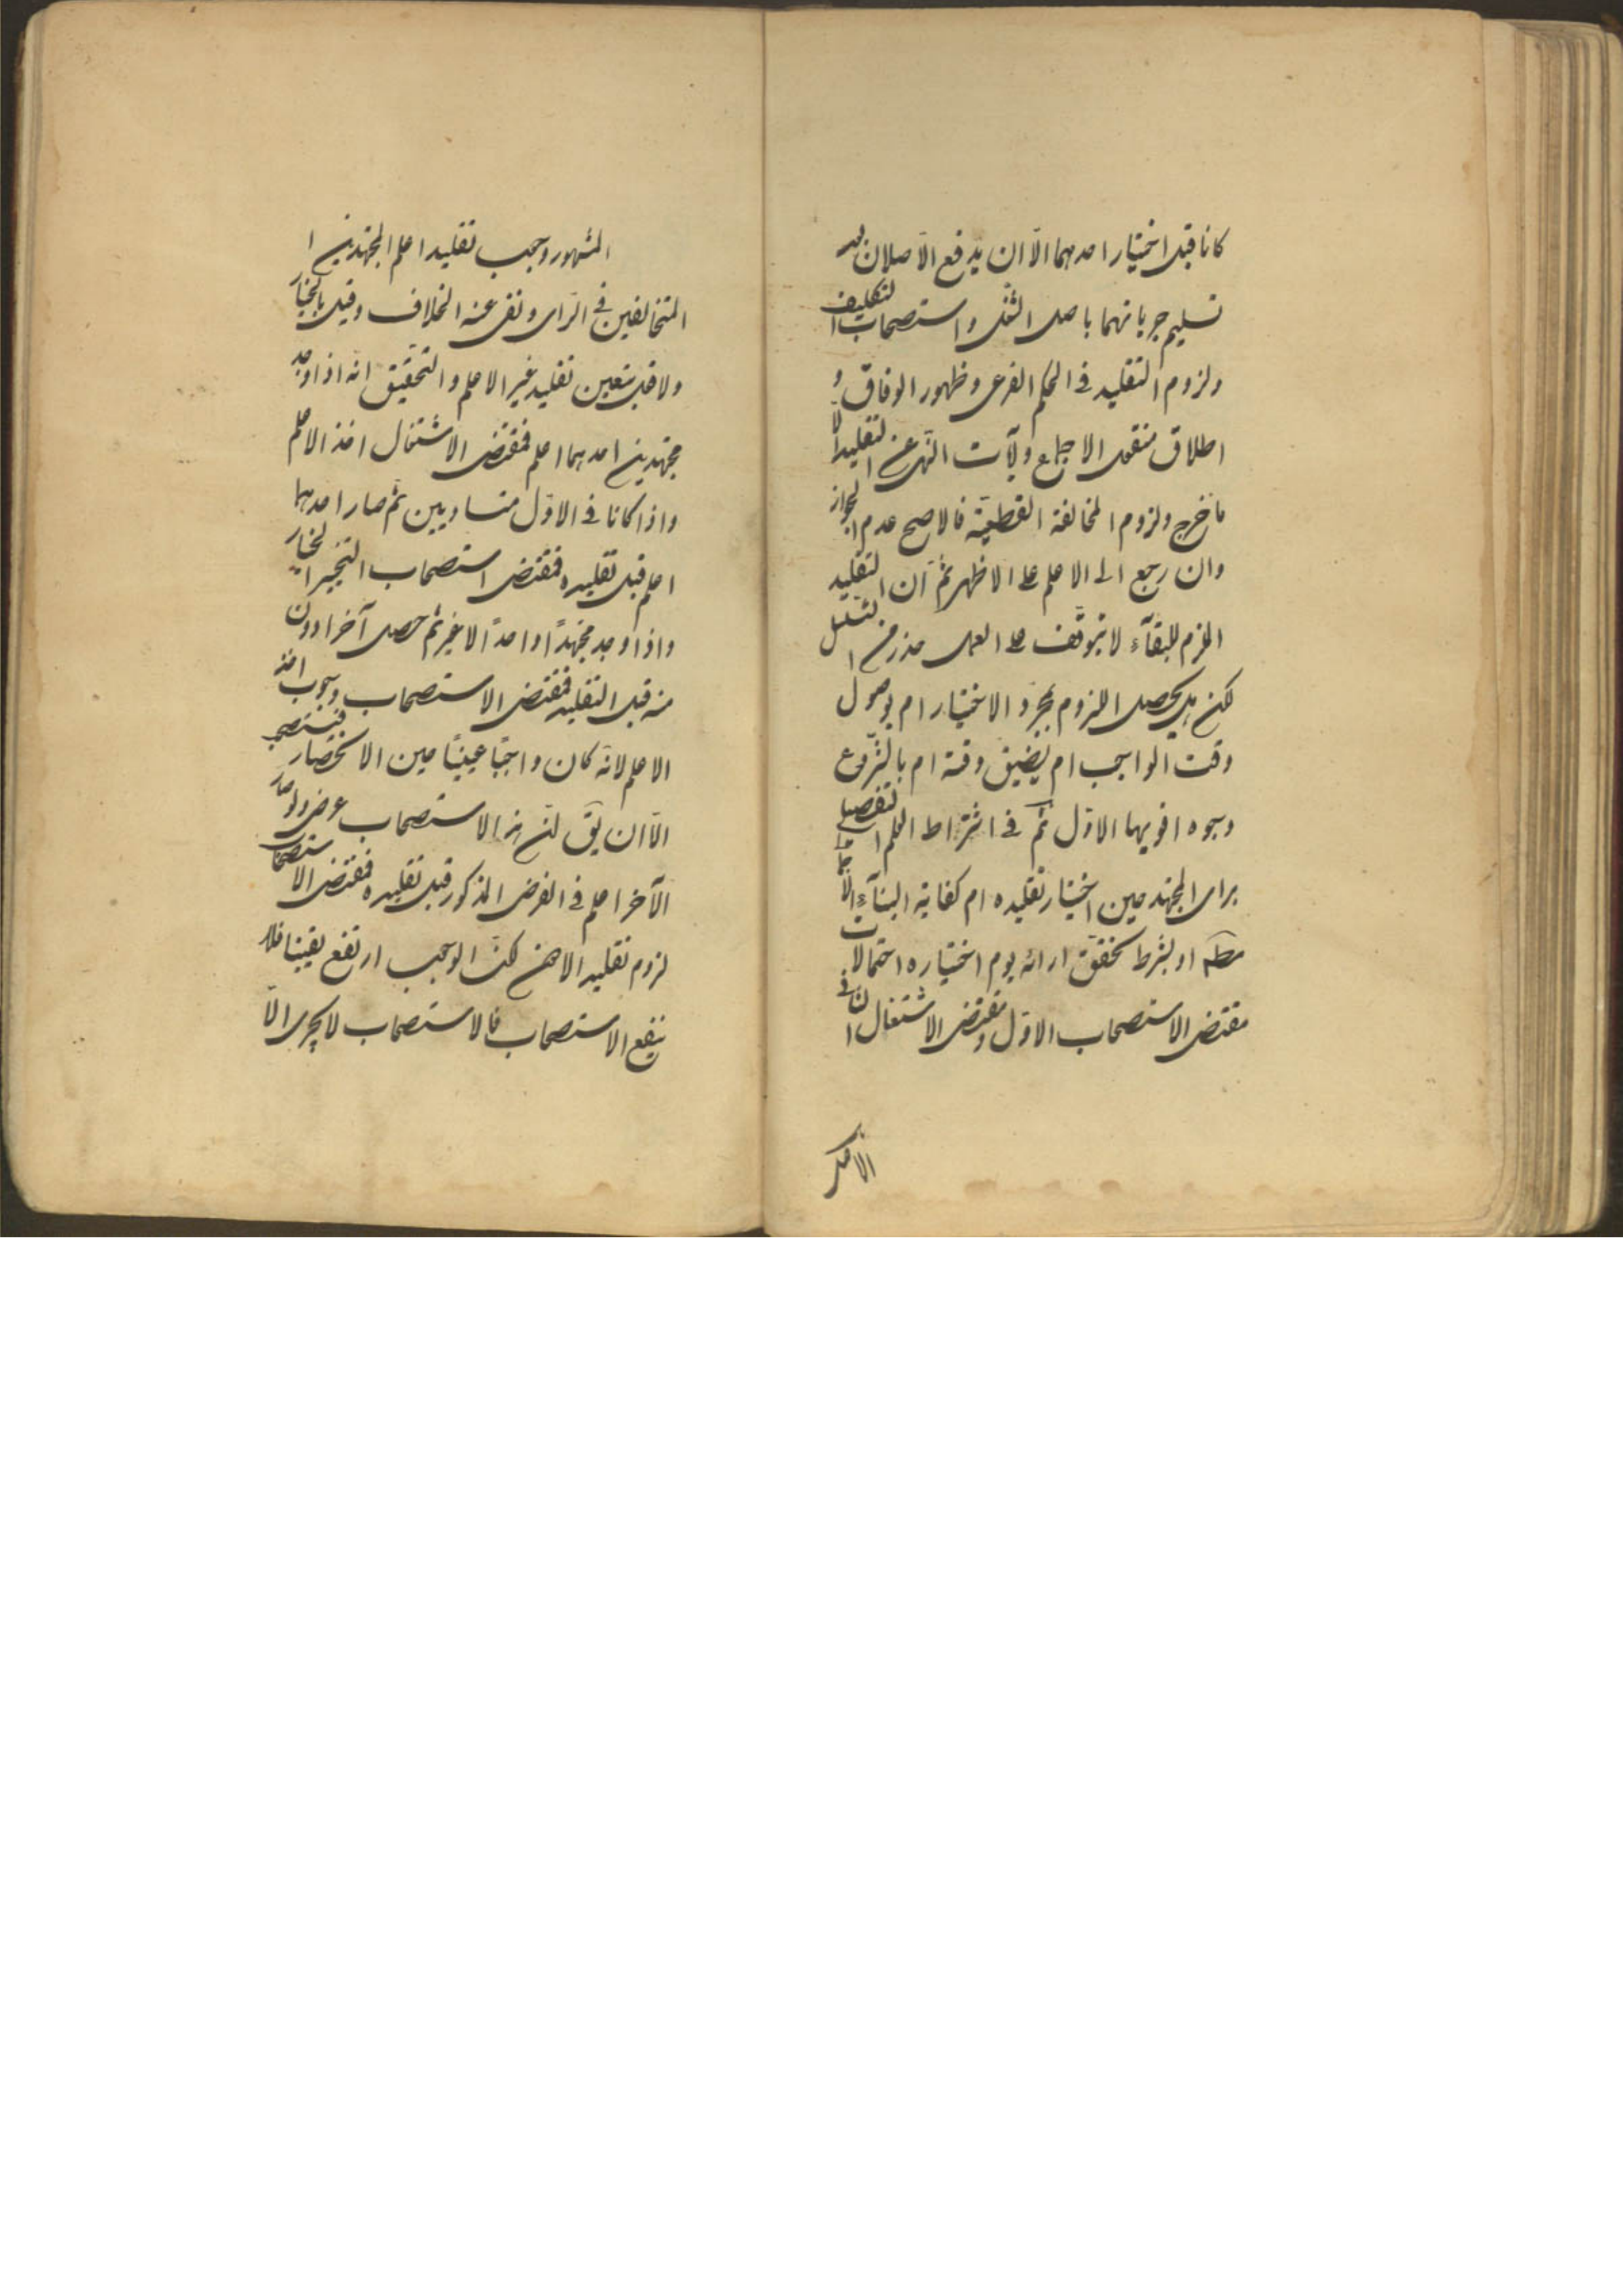 كانا قبل اختيار احدهما الّا ان يدفع الاصلان بعد
تسليم جريانهما باصل الشغل واستصحاب التكليف
ولزوم التقليد فى الحكم الفرعى وظهور الوفاق و
اطلاق منقول الاجماع ولآيات النهى عن التقليد الّا
ما خرج ولزوم المخالفة القطعيّة فالاصح عدم الجواز
وان رجع الى الاعلم على الاظهر ثمّ ان التقليد
الملزم للبقآء لا يتوقّف على العمل حذرا من التسلسل
لكن هل يحصل اللزوم بمجرد الاختيار ام بوصول
وقت الواجب ام بضيق وقته ام بالشّروع
وجوه اقويها الاوّل ثمّ فى اشتراط العلم التفصيلى
براى المجتهد حين اختيار تقليده ام كفاية البنآء الاجمالى
مطلقا او بشرط تحقّق ارائه يوم اختياره احتمالات
مقتضى الاستصحاب الاوّل ومقتضى الاشتغال الثانى
المشهور وجوب تقليد اعلم المجتهدين ا
المتخالفين فى الرّاى ونفى عنه الخلاف وقيل بالخيار
ولا قيل بتعين تقليد غير الاعلم والتّحقيق انّه اذا وجد
مجتهدين احدهما اعلم فمقتضى الاشتغال اخذ الاعلم
واذا كانا فى الاوّل متساويين ثمّ صار احدهما
اعلم قبل تقليده فمقتضى استصحاب التخيير الخيار
واذا وجد مجتهدًا واحدًا لا غير ثمّ حصل آخر ادون
منه قبل التقليد فمقتضى الاستصحاب وجوب اخذ
الاعلم لانّه كان واجبًا عينيًّا حين الانحصار فيستصحب
الّا ان يق لنّ هذا الاستصحاب عرضى ولو صار
الآخر اعلم فى الفرض المذكور قبل تقليده فمقتضى الاستصحاب
لزوم تقليد الادون لكنّ الوجوب ارتفع يقينا فلا
ينفع الاستصحاب فالاستصحاب لا يجرى الّا